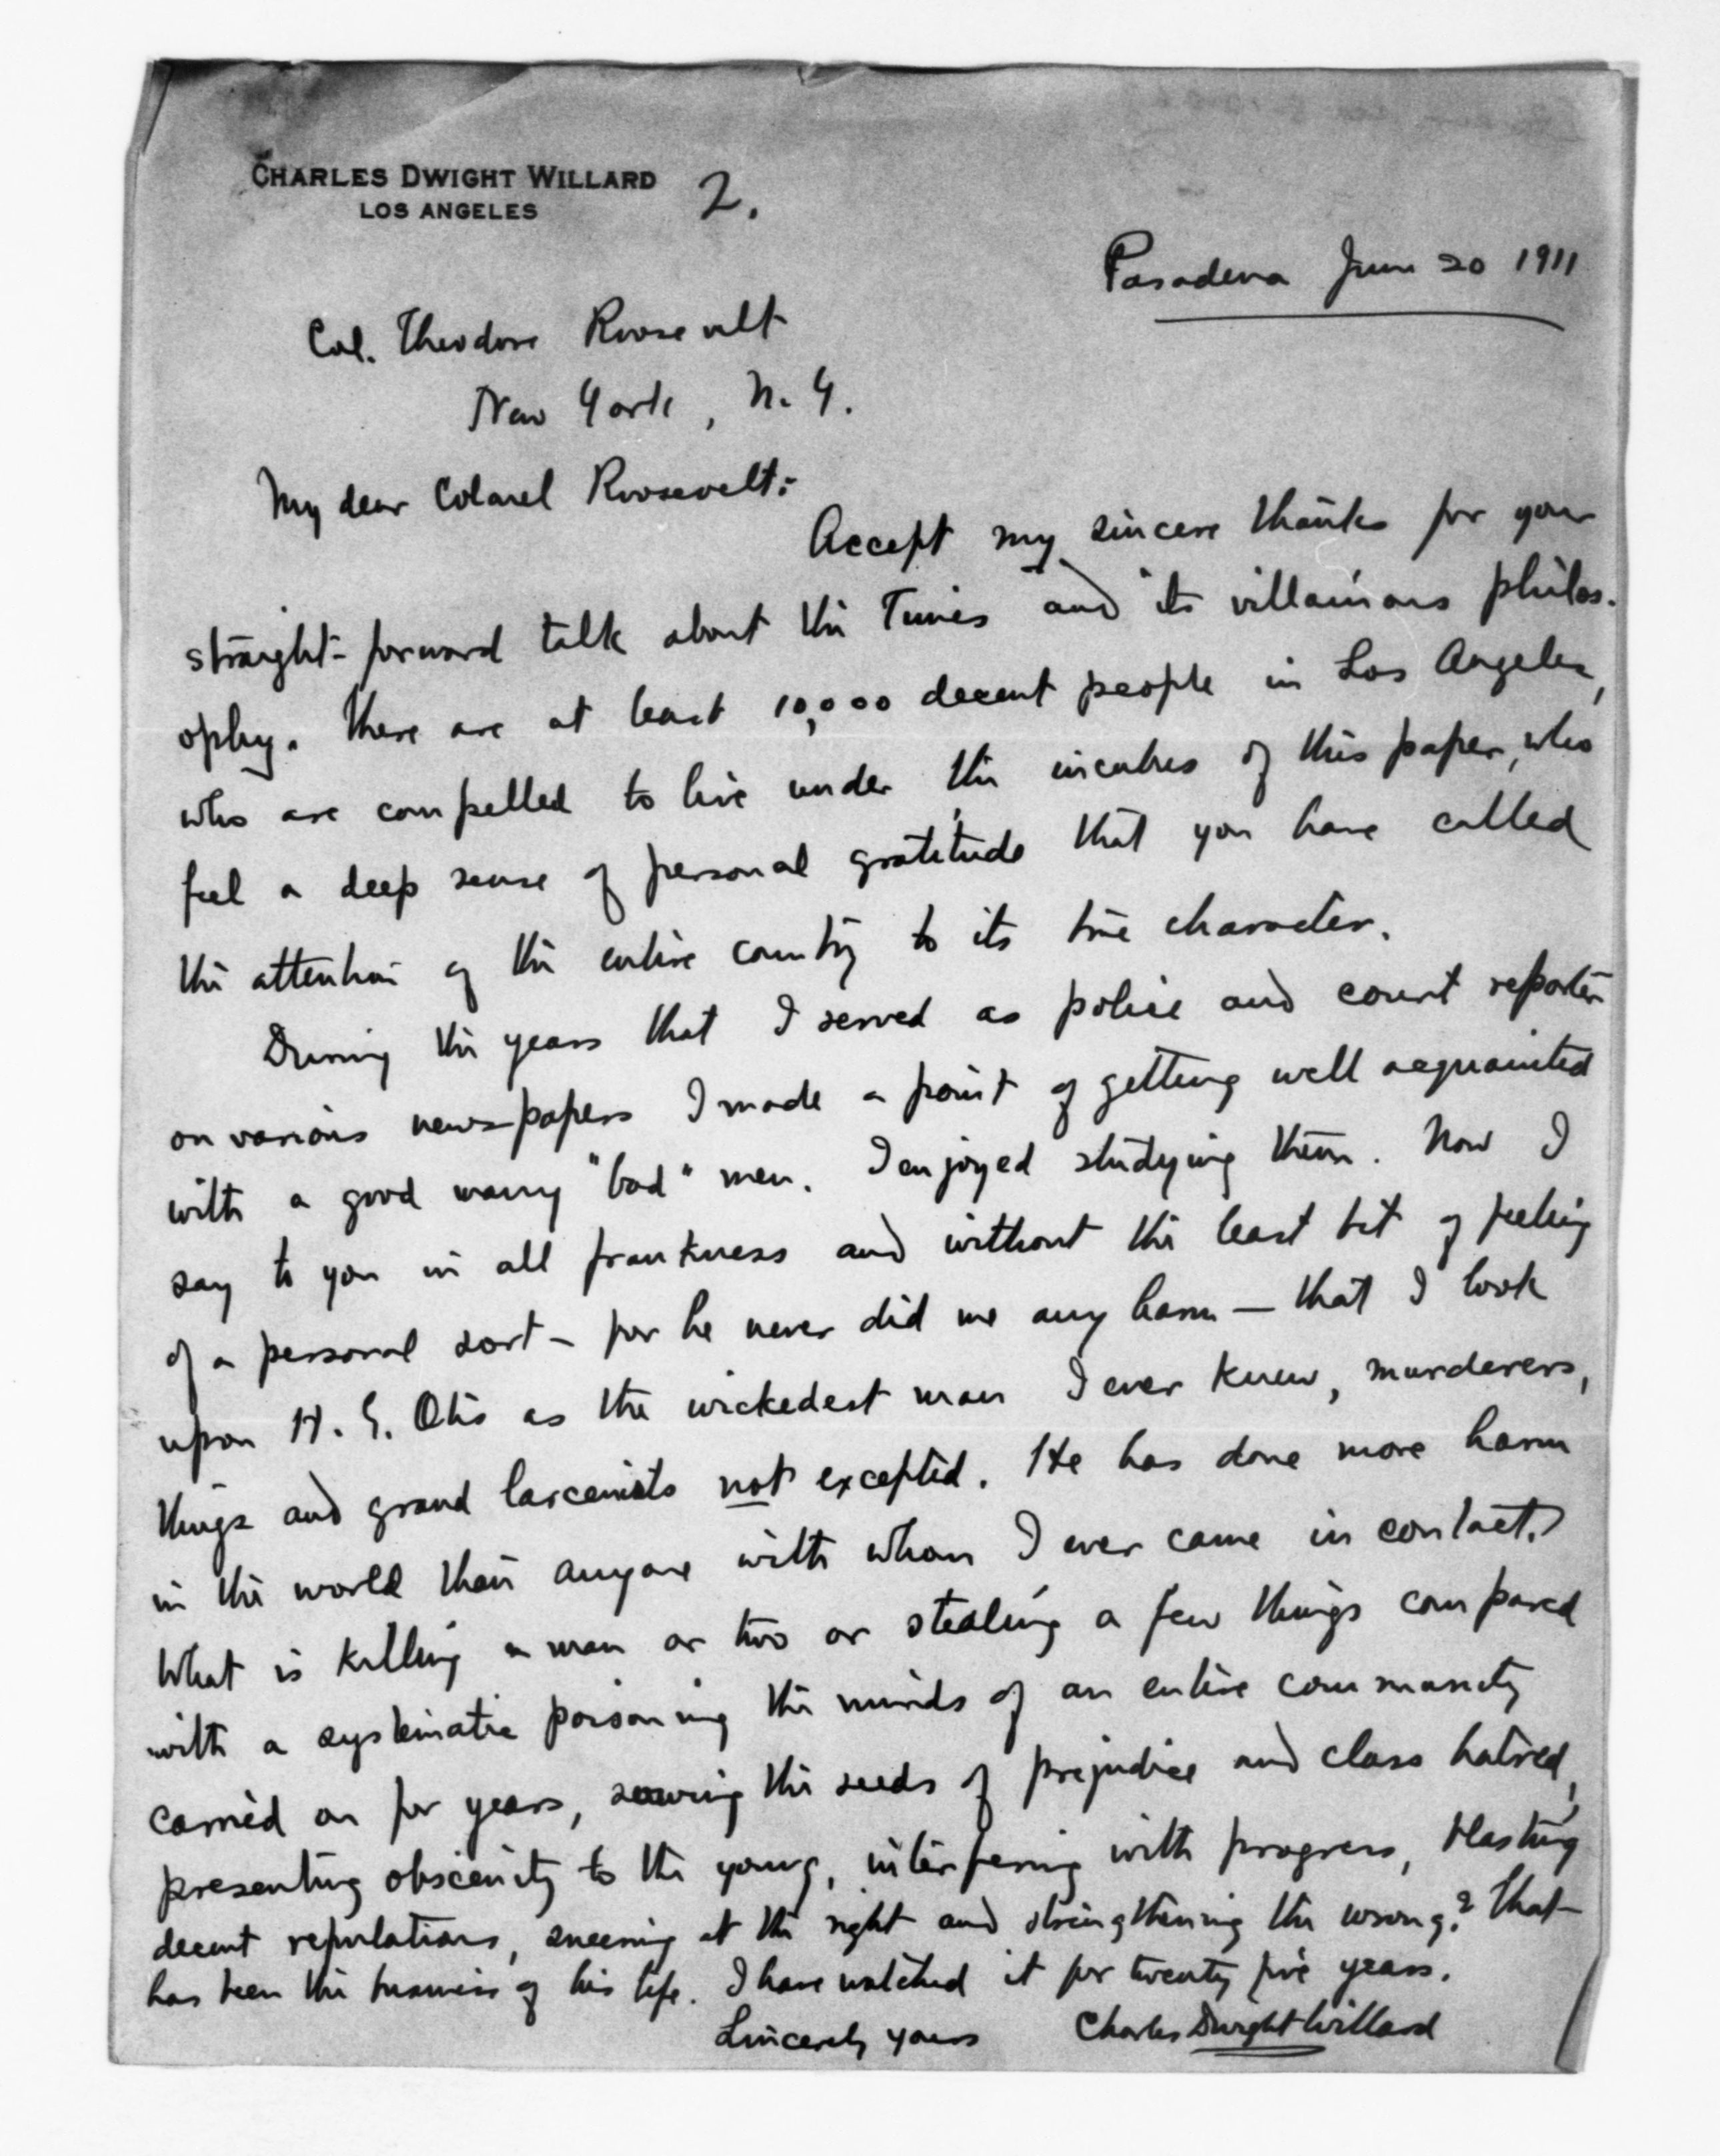 CHARLES DWIGHT WILLARD
LOS ANGELES
2.
Pasadena June 20 1911
Col. Theodore Roosevelt
New York, N. Y.
My dear Colonel Roosevelt:
Accept my sincere thanks for your
straight-forward talk about the Times and its villainous philos-
ophy. There are at least 10,000 decent people in Los Angeles,
who are compelled to live under the incubus of this paper, who
feel a deep sense of personal gratitude that you have called
the attention of the entire country to its true character.
During the years that I served as police and court reporter
on various newspapers I made a point of getting well acquainted
with a good many "bad" men. I enjoyed studying them. Now I
say to you in all frankness and without the least bit of feeling
of a personal sort – for he never did me any harm – that I look
upon H. G. Otis as the wickedest man I ever knew, murderers,
thugs and grand larcenists not excepted. He has done more harm
in the world than anyone with whom I ever came in contact.
What is killing a man or two or stealing a few things compared
with a systematic poisoning the minds of an entire community
carried on for years, sowing the seeds of prejudice and class hatred,
presenting obscenity to the young, interfering with progress, blasting
decent reputations, sneering at the right and strengthening the wrong? That
has been the business of his life. I have watched it for twenty five years.
Sincerely yours Charles Dwight Willard